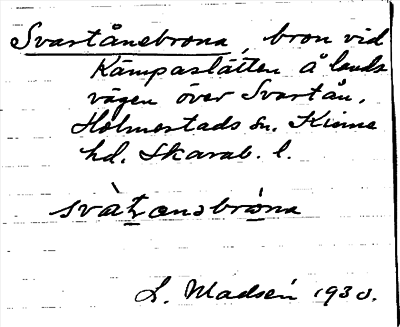 Svartånebrona, bron vid
Kämpaslätten å lands
vägen över Svartån.
Holmestads sn. Kinne
hd. Skarab. l.
svàtₐnəbròna
L. Madsén 1930.